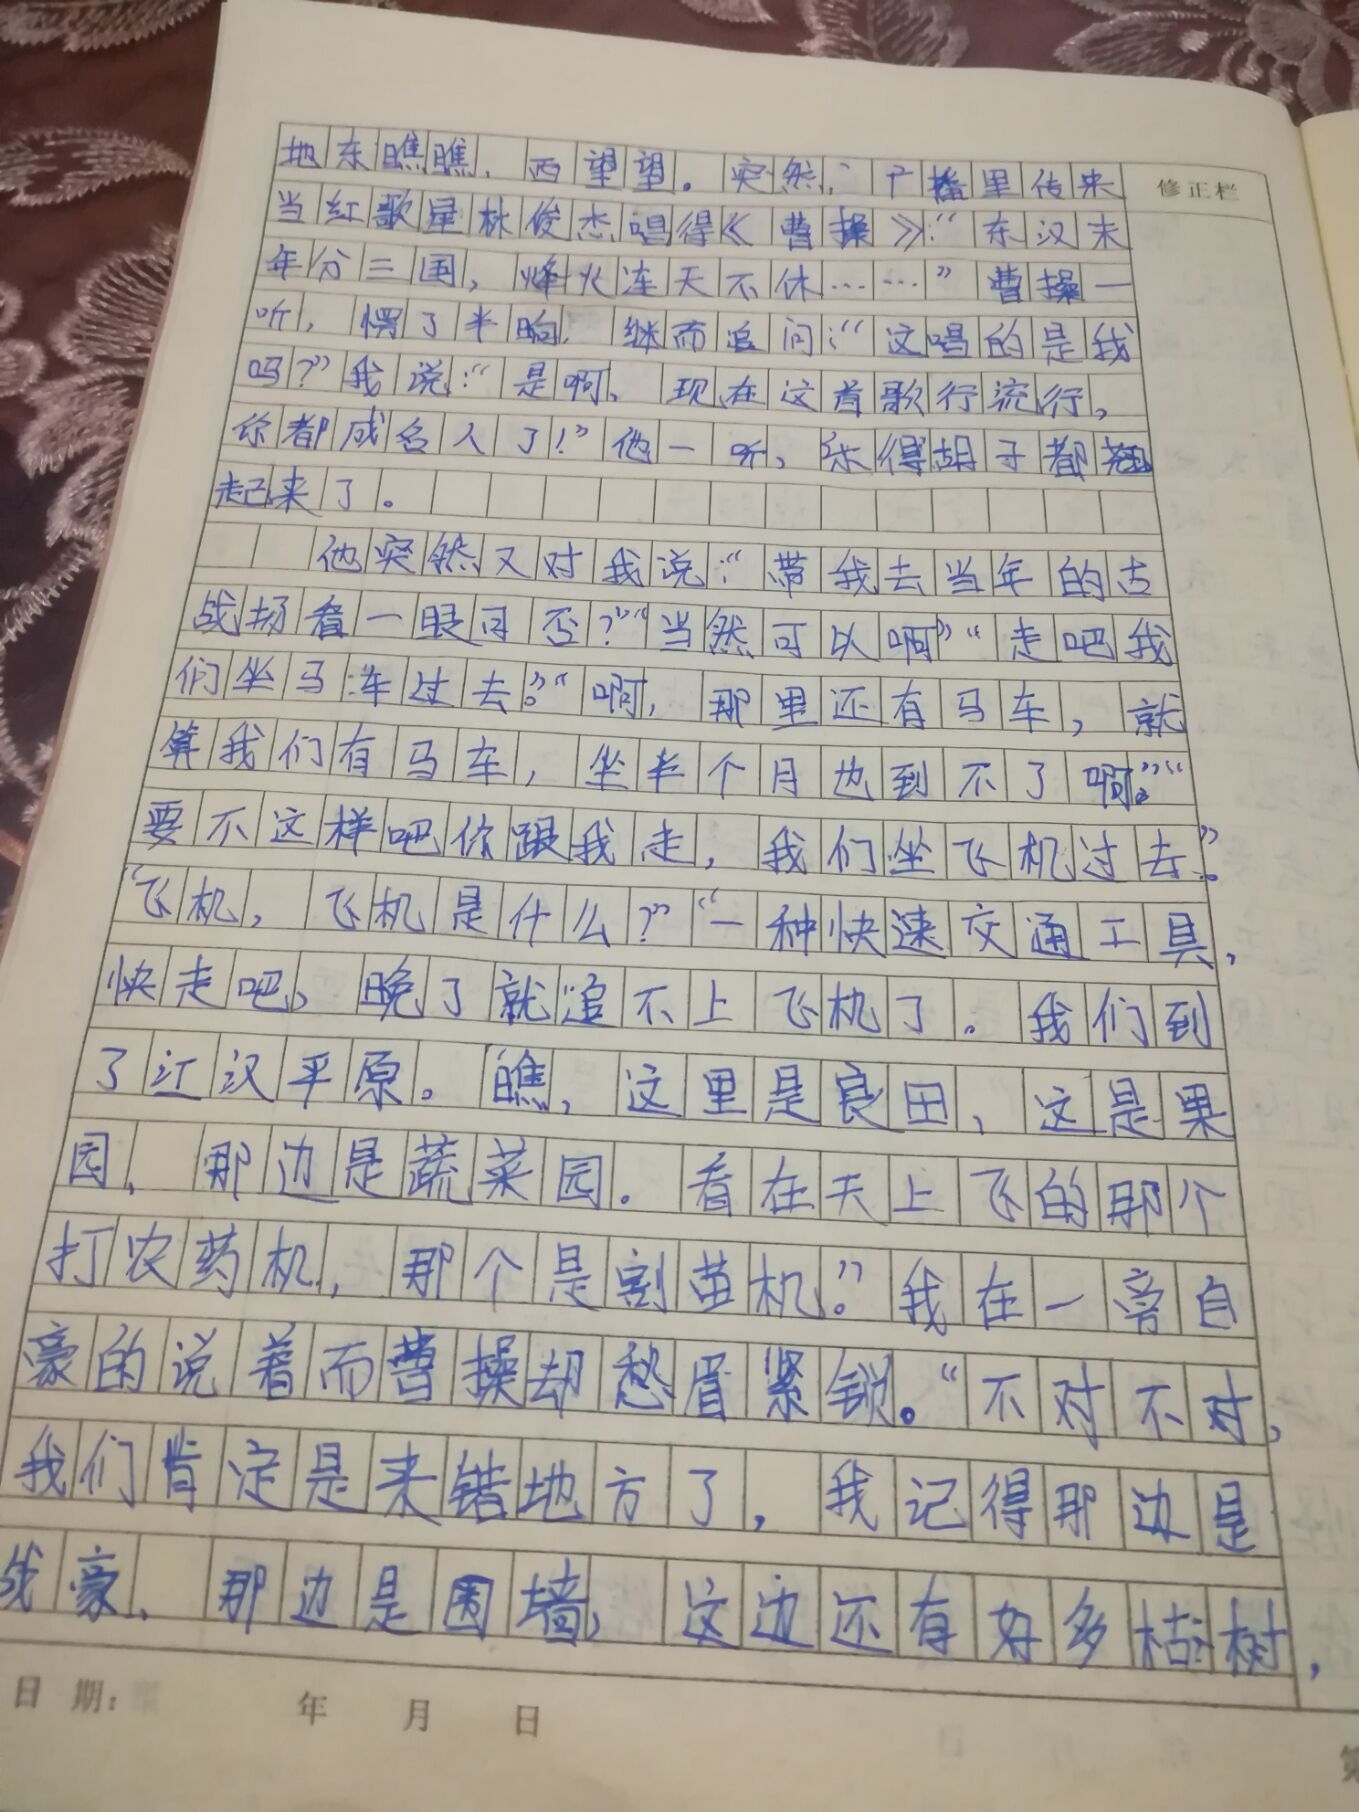 地东瞧瞧，西望望。突然，广播里传来
修正栏
当红歌星林俊杰唱得《曹操》：“东汉末
年分三国，烽火连天不休……”曹操一
听，愣了半晌，继而追问：“这唱的是我
吗？”我说：“是啊，现在这首歌行流行，
你都成名人了！”他一听，乐得胡子都翘
起来了。
他突然又对我说：“带我去当年的古
战场看一眼可否？”“当然可以啊”“走吧我
们坐马车过去。”“啊，那里还有马车，就
算我们有马车，坐半个月也到不了啊。”“
要不这样吧你跟我走，我们坐飞机过去。”
“飞机，飞机是什么？”“一种快速交通工具，
快走吧，晚了就追不上飞机了。我们到
了江汉平原。瞧，这里是良田，这是果
园，那边是蔬菜园。看在天上飞的那个
打农药机，那个是割苗机。”我在一旁自
豪的说着而曹操却愁眉紧锁。“不对不对，
我们肯定是来错地方了，我记得那边是
战豪，那边是围墙，这边还有好多枯树，
日期： 年 月 日
第